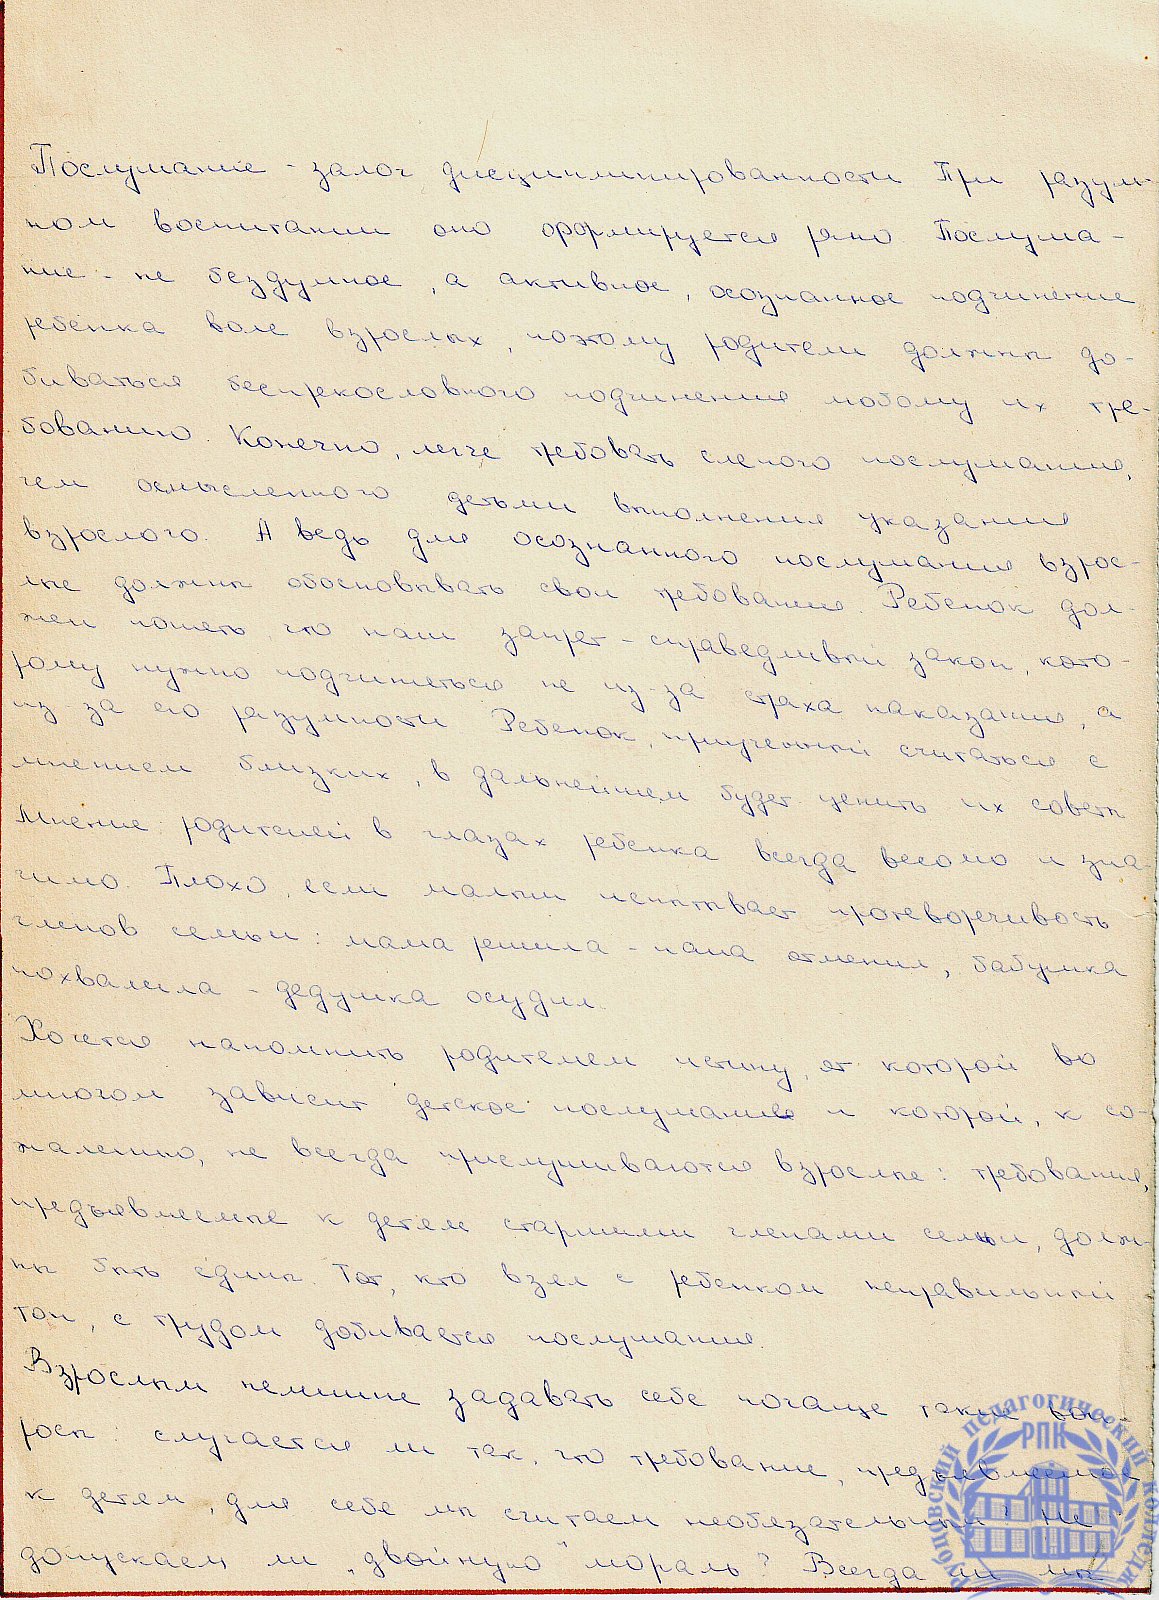 Послушание - залог дисциплинированности При разум-
ном воспитании оно формируется рано. Послуша-
ние - не бездумное, а активное, осознанное подчинение
ребенка воле взрослых, поэтому родители должны до-
биваться беспрекословного подчинения любому их тре-
бованию. Конечно, легче требовать слепого послушания,
чем осмысленного детьми выполнения указания
взрослого. А ведь для осознанного послушания взрос-
лые должны обосновывать свои требования. Ребенок дол-
жен понять, что наш запрет - справедливый закон, кото-
рому нужно подчиняться не из-за страха наказания, а
из за его разумности Ребенок, приученный считаться с
мнением близких, в дальнейшем будет ценить их советы
Мнение родителей в глазах ребенка всегда весомо и зна-
чимо. Плохо, если малыш испытывает противоречивость
членов семьи: мама решила - папа отменил, бабушка
похвалила - дедушка осудил.
Хочется напомнить родителям истину, от которой во
многом зависит детское послушание и которой, к со-
жалению, не всегда прислушиваются взрослые: требования,
предъявляемые к детям старшими членами семьи, долж-
ны быть едины. Тот, кто взял с ребенком неправильный
тон, с трудом добивается послушания
Взрослым нелишне задавать себе почаще такие воп-
росы: случается ли так, что требование, предъявляемое
к детям, для себя мы считаем необязательным? Не
допускаем ли „двойную" мораль? Всегда ли мы
Рубцовский педагогический колледж
РПК